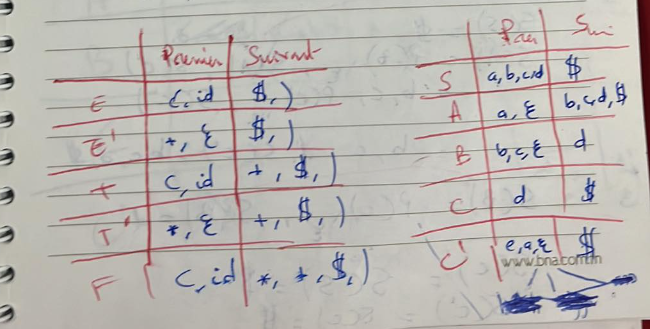 Premier Suivant
E (, id $, )
E' +, ε $, )
T (, id +, $, )
T' *, ε +, $, )
F (, id *, +, $, )
Pre Sui
S a, b, c, d $
A a, ε b, c, d, $
B b, c, ε d
C d $
C' e, a, ε $
www.bna.com.tn